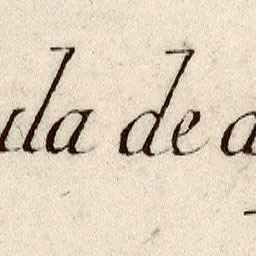 ula de a